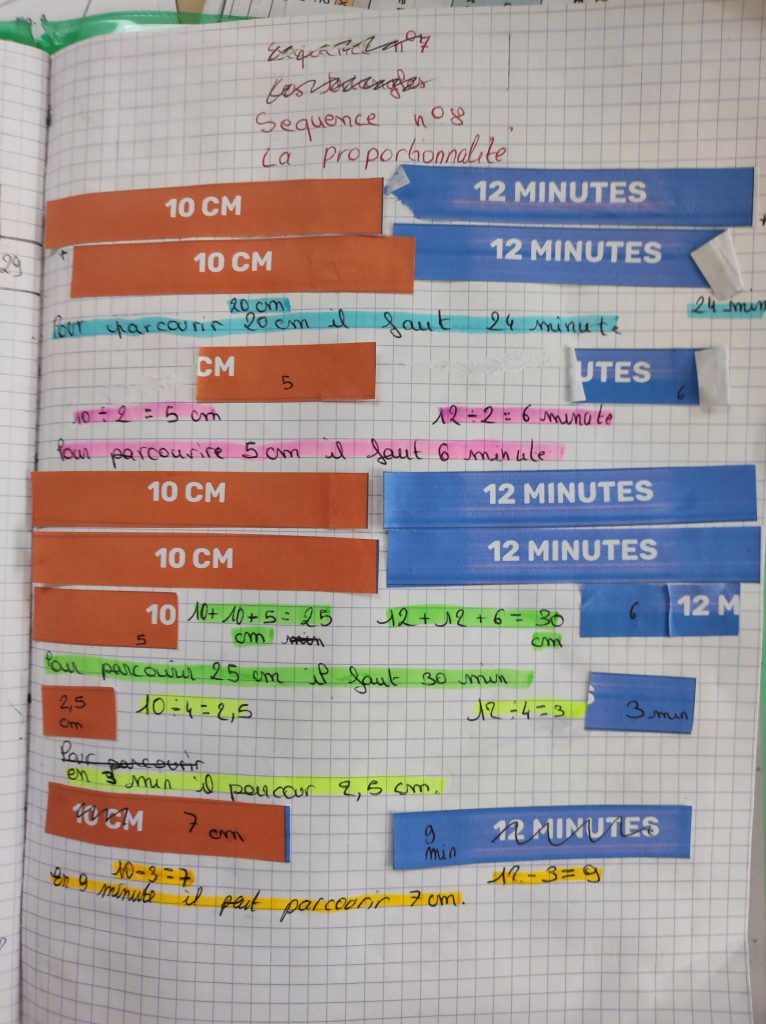 Séquence n°7
Les triangles
Sequence n°8
La proportionnalité
10 CM 12 MINUTES
10 CM 12 MINUTES
29
20 cm 24 min
Pour parcourir 20 cm il faut 24 minute
CM 5 UTES 6
10 ÷ 2 = 5 cm 12 ÷ 2 = 6 minute
Pour parcourire 5 cm il faut 6 minute
10 CM 12 MINUTES
10 CM 12 MINUTES
10 5 10 + 10 + 5 = 25 12 + 12 + 6 = 30 6 12 M
cm min cm
Pour parcourir 25 cm il faut 30 min
2,5 cm 10 ÷ 4 = 2,5 12 ÷ 4 = 3 S 3 min
Pour parcourir
en 3 min il poucour 2,5 cm.
10 CM 7 cm 9 min 12 MINUTES
10 - 3 = 7 12 - 3 = 9
En 9 minute il peut parcourir 7 cm.